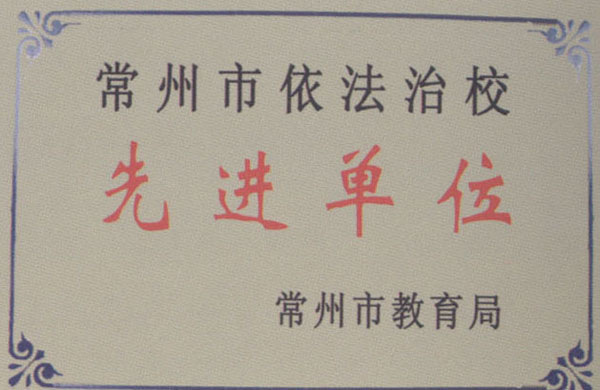 常州市依法治校
先进单位
常州市教育局